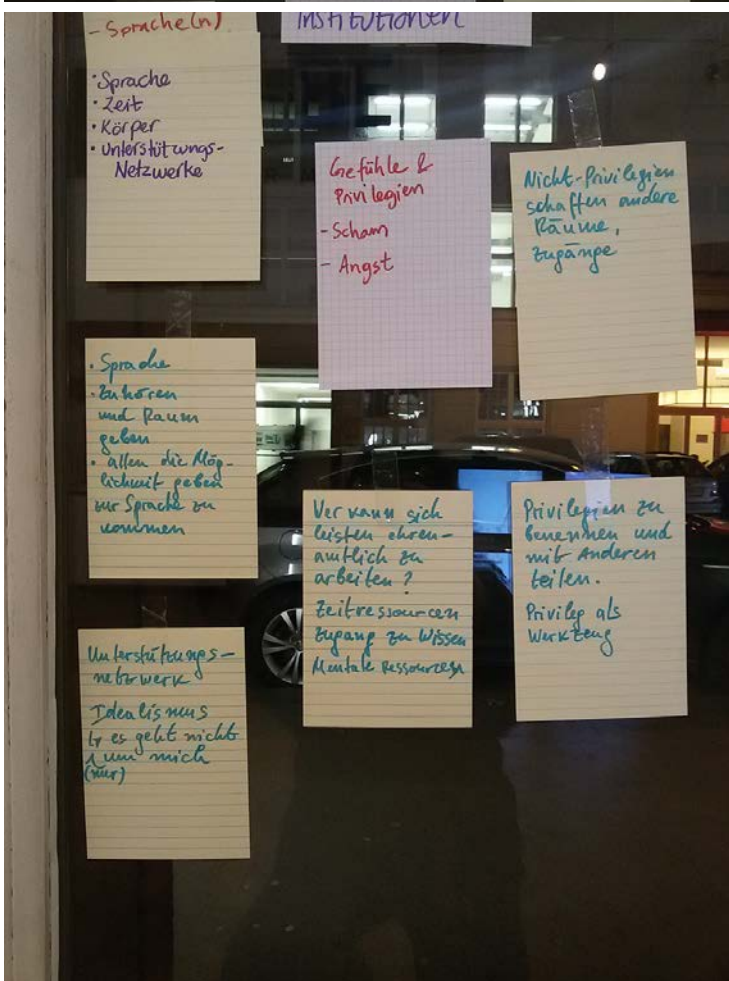 - Sprache(n)
Institutionen
• Sprache
• Zeit
• Körper
• Unterstützungs-
Netzwerke
Gefühle &
Privilegien
- Scham
- Angst
Nicht-Privilegien
schaffen andere
Räume,
Zugänge
• Sprache
• Zuhören
und Raum
geben
• allen die Mög-
lichkeit geben
zur Sprache zu
kommen
Wer kann sich
leisten ehren-
amtlich zu
arbeiten?
Zeitressourcen
Zugang zu Wissen
Mentale Ressourcen
Privilegien zu
benennen und
mit Anderen
teilen.
Privileg als
Werkzeug
Unterstützungs-
netzwerk
Idealismus
↳ es geht nicht
um mich
(nur)